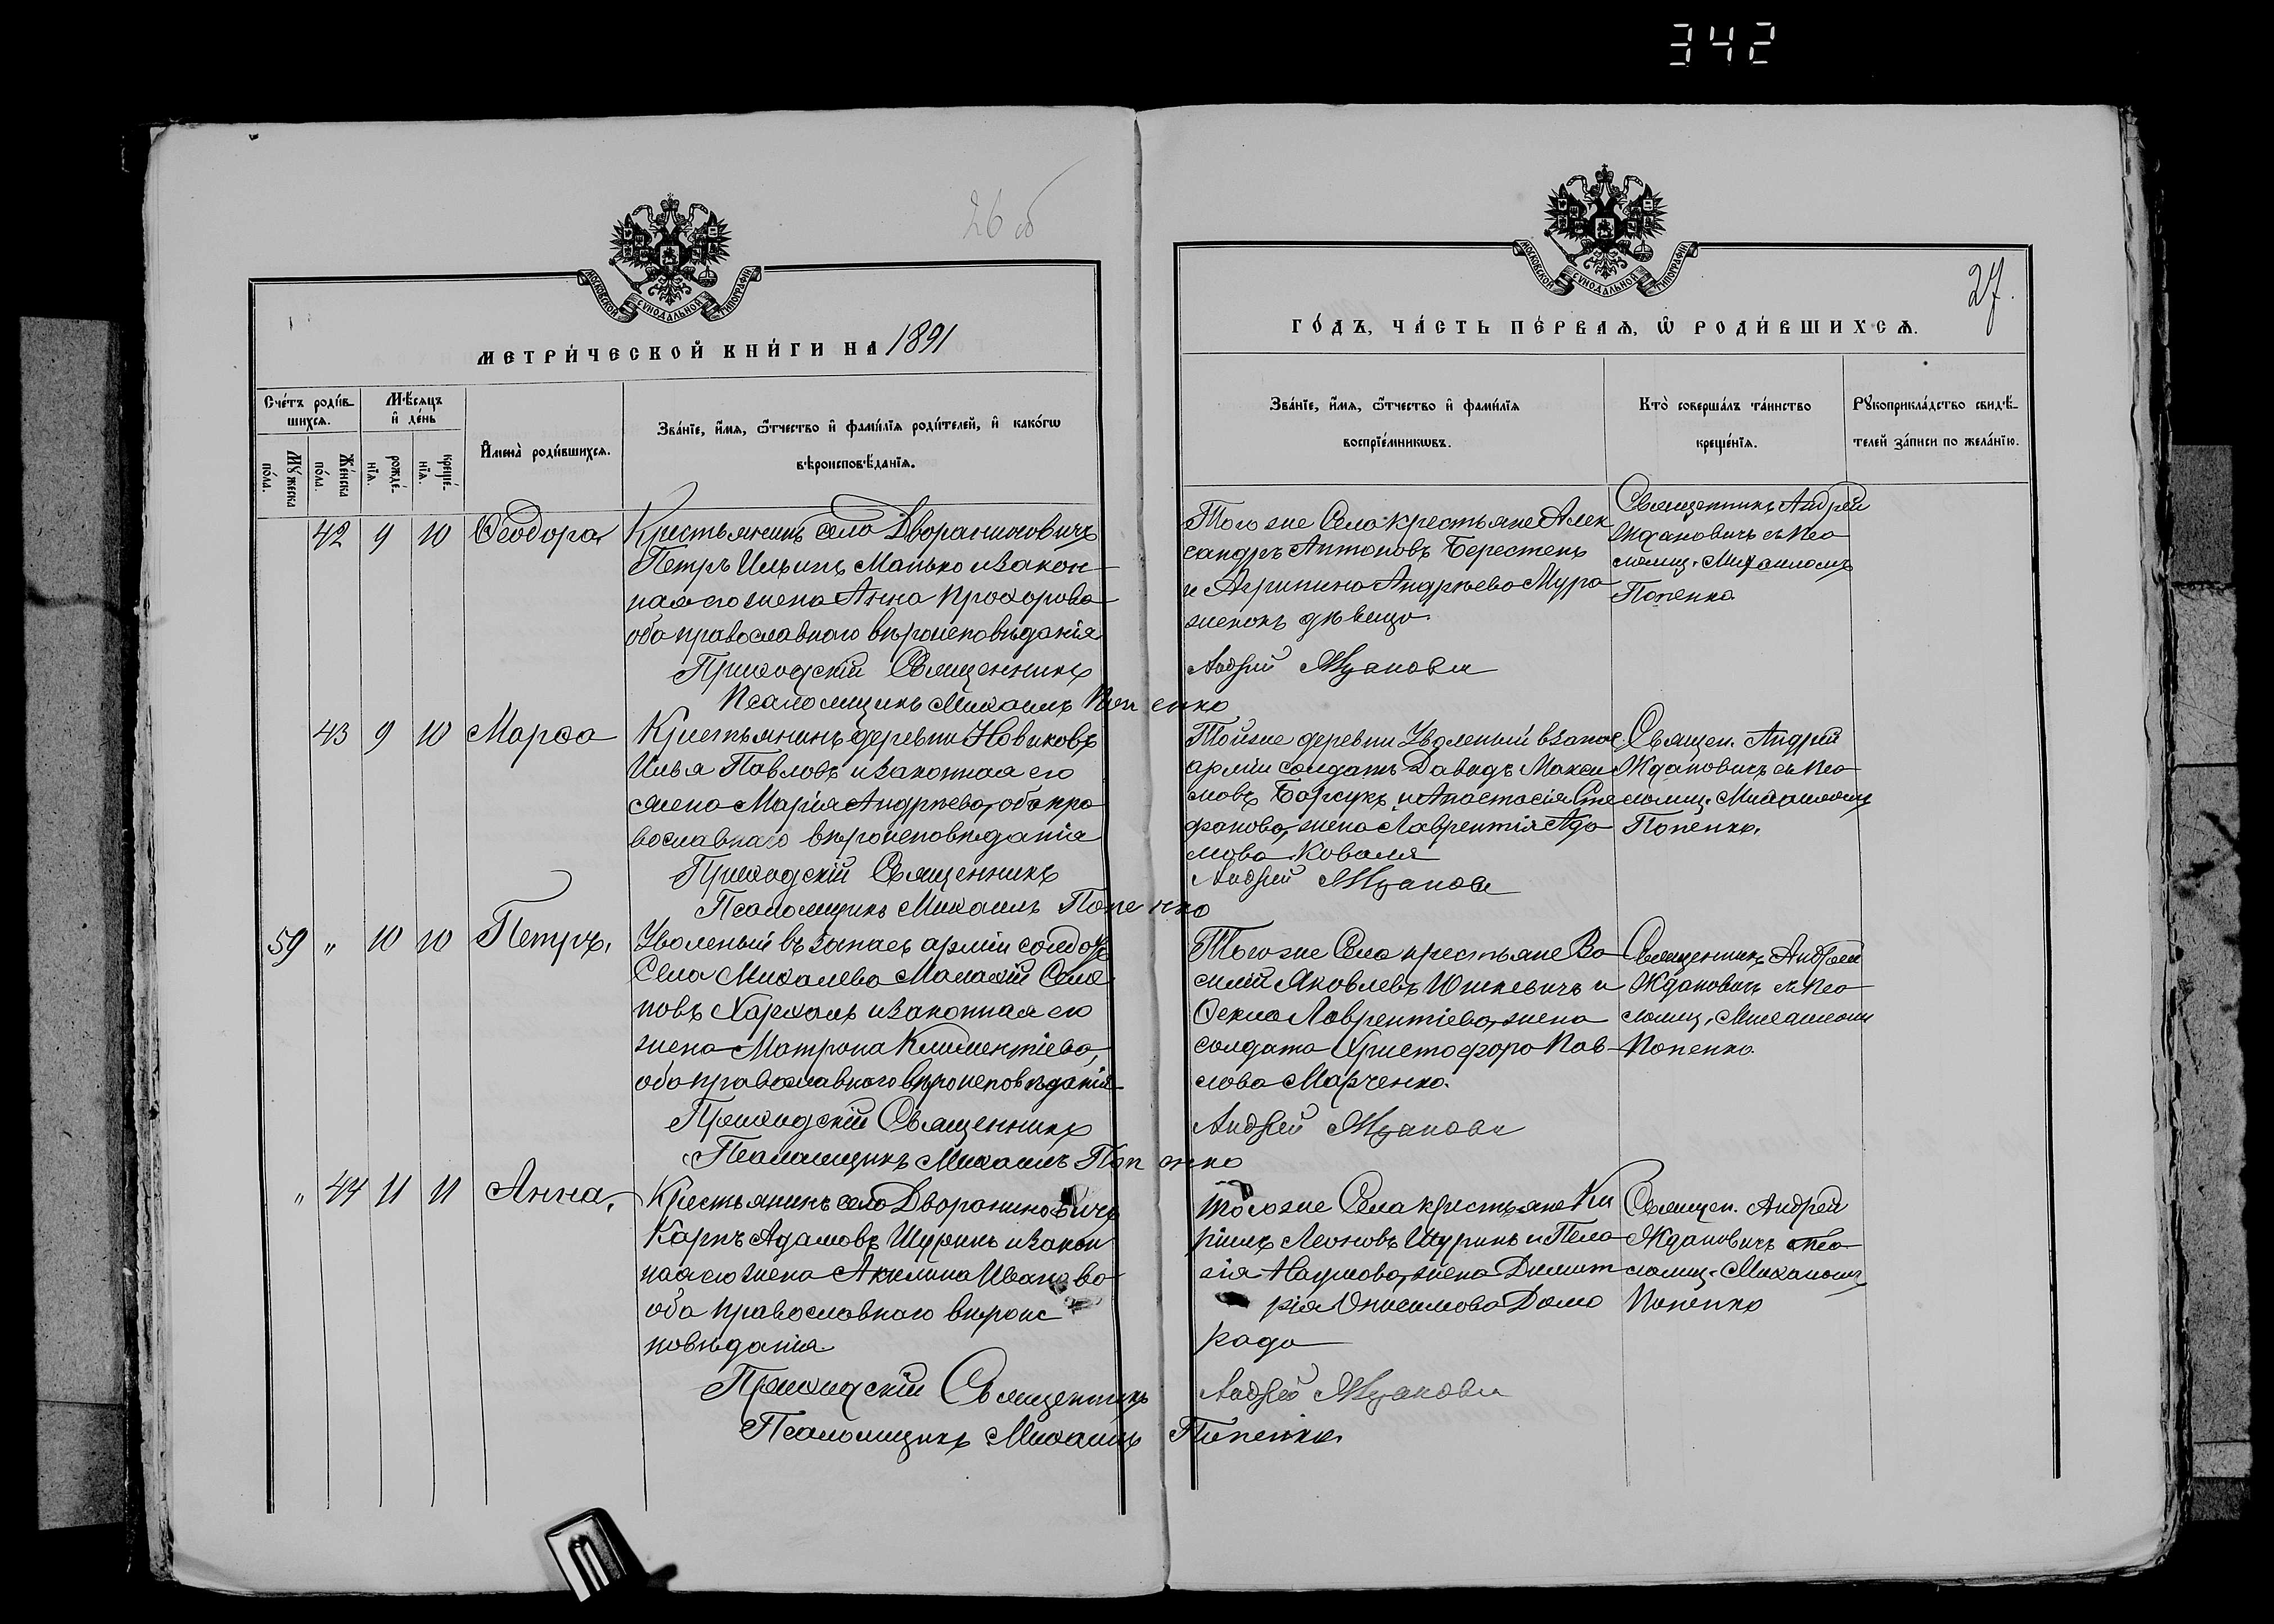 342
26 об
МОСКОВСКОЙ СУНОДАЛЬНОЙ ТИПОГРАФІИ
МЕТРИ́ЧЕСКОЙ КНИ́ГИ НА 1891
Сче́тъ роди́в-
шихсѧ.
Мꙋ́жеска
по́ла.
Же́нска
по́ла.
М‍ѣ́сѧцъ
и҆ де́нь
рожде́-
нїѧ.
креще́-
нїѧ.
И҆мена̀ роди́вшихсѧ.
Зва́нїе, и҆́мѧ, ѻ҆́тчество и҆ фами́лїѧ роди́телей, и҆ како́гѡ
вѣроисповѣ́данїѧ.
42 9 10 Ѳеодора
Крестьянинъ села Двораниновичъ
Петръ Ильинъ Манько и закон-
ная его жена Анна Прохорова
оба православнаго вѣроисповѣданія
Приходскій Священникъ
Псаломщикъ Михаилъ Попенко
43 9 10 Марѳа
Крестьянинъ деревни Новиковъ
Илья Павловъ и законная его
жена Марія Андреева, оба пра
вославнаго вѣроисповѣданія
Приходскій Священникъ
Псаломщикъ Михаилъ Попенко
59 " 10 10 Петръ,
Уволеный въ запасъ арміи солдатъ
Села Михалева Малахій Семе
новъ Хархаль и законная его
жена Матрона Климентіева,
оба православнаго вѣроисповѣданія
Приходскій Священникъ
Псаломщикъ Михаилъ Попенко
" 44 11 11 Анна,
Крестьянинъ села Дворониновичъ
Карпъ Адамовъ Шуринъ и закон
ная его жена Акилина Иванова
оба православнаго вѣроис
повѣданія
Приходскій Священникъ
Псаломщикъ Михаилъ Попенко
МОСКОВСКОЙ СУНОДАЛЬНОЙ ТИПОГРАФІИ
27.
ГО́ДЪ, ЧА́СТЬ ПЕ́РВАѦ, Ѽ РОДИ́ВШИХСѦ.
Зва́нїе, и҆́мѧ, ѻ҆́тчество и҆ фами́лїѧ
воспрїе́мникѡвъ.
Кто̀ соверша́лъ та́инство
креще́нїѧ.
Рꙋкоприкла́дство свидѣ́-
телей за́писи по жела́нїю.
Того же Села крестьяне Алек
сандръ Антоновъ Берестень
и Агрипина Андреева Мура
женокъ дѣвица.
Андрей Жданович
Священникъ Андрей
Ждановичъ съ Пса
ломщ. Михаиломъ
Попенко
Той же деревни Уволеный въ запас
арміи солдатъ Давидъ Макси
мовъ Барсукъ и Анастасія Сте
фанова, жена Лаврентія Ада
мова Коваля
Андрей Жданович
Священ. Андрей
Ждановичъ съ Пса
ломщ. Михаиломъ
Попенко.
Того же Села крестьяне Ва
силій Яковлевъ Юшкевичъ и
Ѳекла Лаврентіева, жена
солдата Христофора Пав-
лова Марченко.
Андрей Жданович
Священникъ Андрей
Ждановичъ съ Пса
ломщ. Михаиломъ
Попенко.
Того же Села крестьяне Ки
рилъ Леоновъ Шуринъ и Пела
гія Наумова, жена Димит
рія Онисимова Домо
рада
Андрей Жданович
Священ. Андрей
Ждановичъ съ Пса
ломщ. Михаиломъ
Попенко